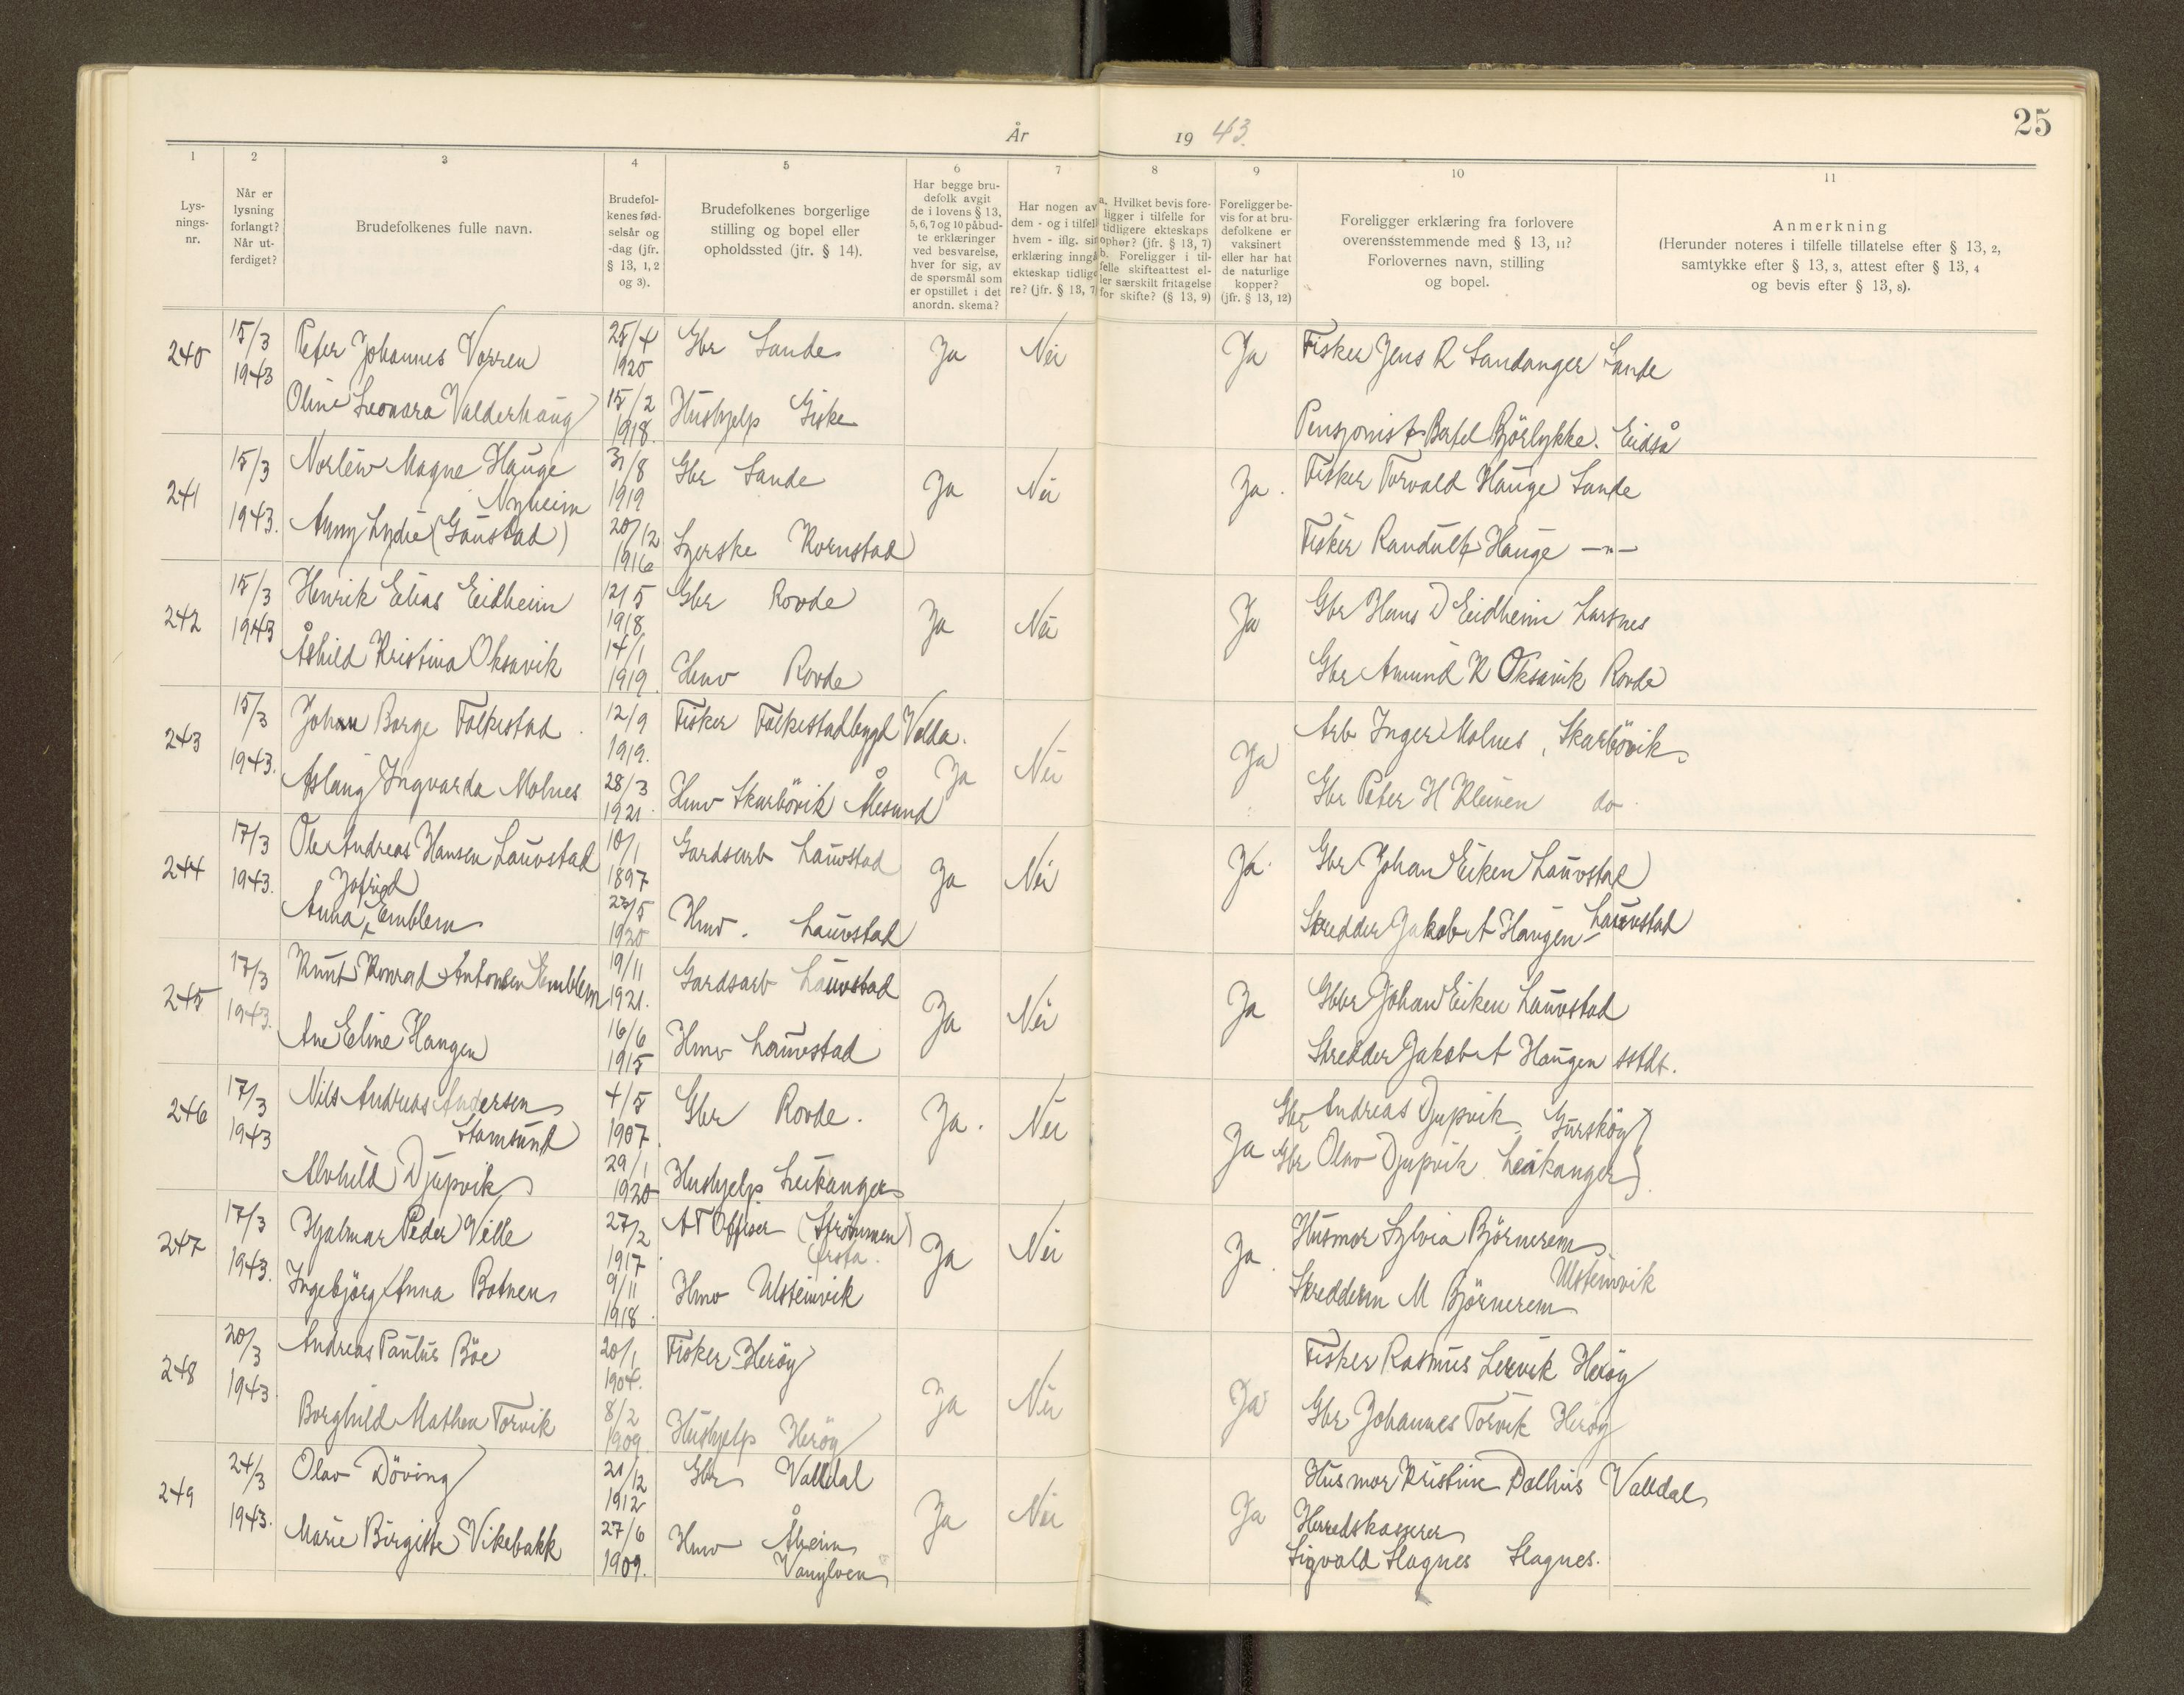 År 1943.
25
1
2
3
4
5
6
7
8
9
10
11
Lys-
nings-
nr.
Når er
lysning
forlangt?
Når ut-
ferdiget?
Brudefolkenes fulle navn.
Brudefol-
kenes fød-
selsår og
-dag (jfr.
§ 13, 1, 2
og 3).
Brudefolkenes borgerlige
stilling og bopel eller
opholdssted (jfr. § 14).
Har begge bru-
defolk avgit
de i lovens § 13,
5, 6, 7 og 10 påbud-
te erklæringer
ved besvarelse,
hver for sig, av
de spørsmål som
er opstillet i det
anordn. skema?
Har nogen av
dem - og i tilfell
hvem - iflg. sin
erklæring inngå
ekteskap tidlige
re? (jfr. § 13, 7)
a. Hvilket bevis fore-
ligger i tilfelle for
tidligere ekteskaps
ophør? (jfr. § 13, 7)
b. Foreligger i til-
felle skifteattest el-
ler særskilt fritagelse
for skifte? (§ 13, 9)
Foreligger be-
vis for at bru-
defolkene er
vaksinert
eller har hat
de naturlige
kopper?
(jfr. § 13, 12)
Foreligger erklæring fra forlovere
overensstemmende med § 13, 11?
Forlovernes navn, stilling
og bopel.
Anmerkning
(Herunder noteres i tilfelle tillatelse efter § 13, 2,
samtykke efter § 13, 3, attest efter § 13, 4
og bevis efter § 13, 8).
240 15/3 Peter Johannes Vorren 25/4 Gbr Sande Ja Nei Ja Fisker Jens R Sandanger Sande
1943 1920
Oline Leonara Valderhaug 15/2 Hushjelp Giske Pensjonist Bertel Björlykke. Eidså
1918.
241 15/3 Norleiv Magne Hauge 31/8 Gbr Sande Ja Nei Ja. Fisker Torvald Hauge Sande
Nyheim 1919
1943. Anny Lydie (Gaustad) 20/12 Syerske Kornstad Fisker Randulf Hauge —"—
1916
242 15/3 Henrik Elias Eidheim 21/5 Gbr Rovde Ja Nei Ja Gbr Hans D Eidheim Larsnes
1943 1918
Åshild Kristina Oksavik 14/1 Hmv Rovde Gbr Amund K Oksavik Rovde
1919.
243 15/3 Johan Borge Folkestad 12/9 Fisker Folkestadbygd Volda. Ja Nei Ja Arb Inger Molnes, Skarbövik
1943. 1919.
Aslaug Ingvarda Molnes 28/3 Hmv Skarbövik Ålesund Gbr Peter H Kleiven do
1921.
244 17/3 Ole Andreas Hansen Lauvstad 10/1 Gardsarb Lauvstad Ja Nei Ja. Gbr Johan Eiken Lauvstad
1943. 1897
Jofrid
Anna Emblem 23/5 Hmv. Lauvstad Skredder Jakob A Haugen Lauvstad
1920
245 17/3 Knut Konrad Antonsen Emblem 19/11 Gardsarb Lauvstad Ja Nei Ja Gbr Johan Eiken Lauvstad
1943. 1921.
Ane Eline Haugen 16/6 Hmv Lauvstad Skredder Jakob A Haugen sstds.
1915
246 17/3 Nils Andreas Andersen 4/5 Gbr Rovde. Ja. Nei Ja Gbr Andreas Djupvik, Gursköy
1943 Stamsund 1907.
Alvhild Djupvik 29/1 Hushjelp Leikanger Gbr Olav Djupvik Leikanger
1920
247 17/3 Hjalmar Peder Velle 27/2 AT Offiser (Strömmen) Ja Nei Ja. Husmor Sylvia Björnerem
1943. 1917. Ørsta. Ulsteinvik
Ingebjörg Anna Botnen 9/11 Hmv Ulsteinvik Skredderm M Björnerem
1918.
248 20/3 Andreas Paulus Böe 20/1 Fisker Heröy Ja Nei Ja Fisker Rasmus Lervik Heröy
1943 1904.
Borghild Mathea Torvik 8/2 Hushjelp Heröy Gbr Johannes Torvik Heröy
1909.
249 24/3 Olav Döving 21/12 Gbr Valldal Ja Nei Ja Husmor Kristine Dalhus Valldal
1943. 1912
Marie Birgitte Vikebakk 27/6 Hmv Åheim Herredskasserer
1909. Vanylven Sigvald Slagnes Slagnes.